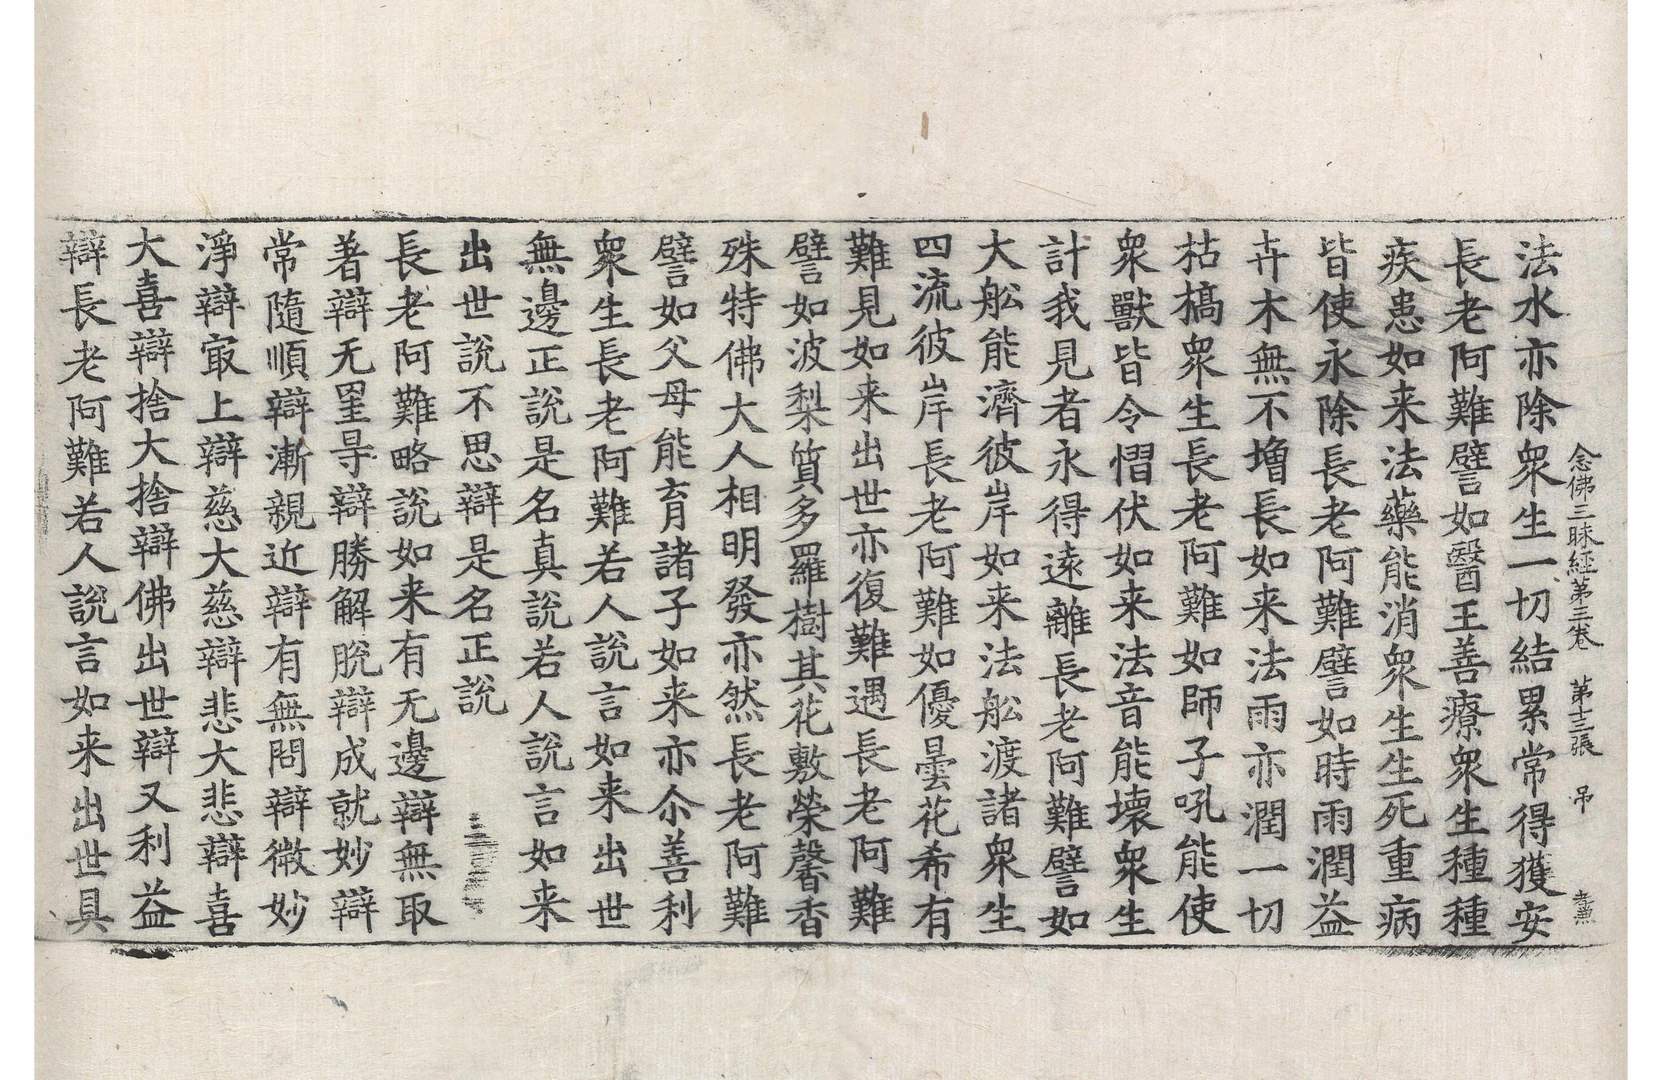 念佛三昧経第三卷　第十三張　吊　孝兼
法水亦除衆生一切結累常得獲安
長老阿難譬如醫王善療衆生種種
疾患如来法藥能消衆生生死重病
皆使永除長老阿難譬如時雨潤益
卉木無不增長如来法雨亦潤一切
枯槁衆生長老阿難如師子吼能使
衆獸皆令慴伏如来法音能壞衆生
計我見者永得遠離長老阿難譬如
大舩能濟彼岸如来法舩渡諸衆生
四流彼岸長老阿難如優曇花希有
難見如来出世亦復難遇長老阿難
譬如波梨質多羅樹其花敷榮馨香
殊特佛大人相明發亦然長老阿難
譬如父母能育諸子如来亦尒善利
衆生長老阿難若人說言如来出世
無邊正說是名真說若人說言如来
出世說不思辯是名正說
長老阿難略說如来有无邊辯無取
著辯无罣㝵辯勝解脫辯成就妙辯
常隨順辯漸親近辯有無問辯微妙
淨辯㝡上辯慈大慈辯悲大悲辯喜
大喜辯捨大捨辯佛出世辯又利益
辯長老阿難若人說言如来出世具